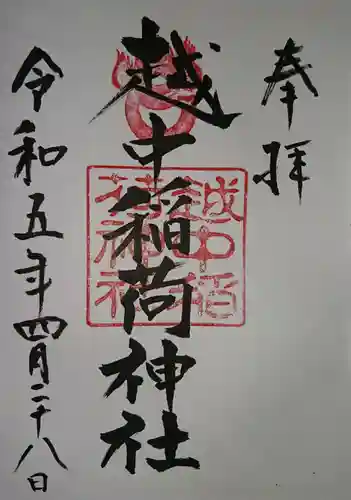 奉拝
越中稲荷神社
越中稲
荷神社
令和五年四月二十八日